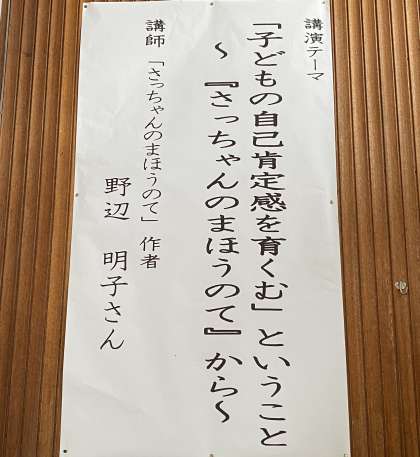 講演テーマ
「子どもの自己肯定感を育くむ」ということ
～『さっちゃんのまほうのて』から～
講師「さっちゃんのまほうのて」作者
野辺 明子さん